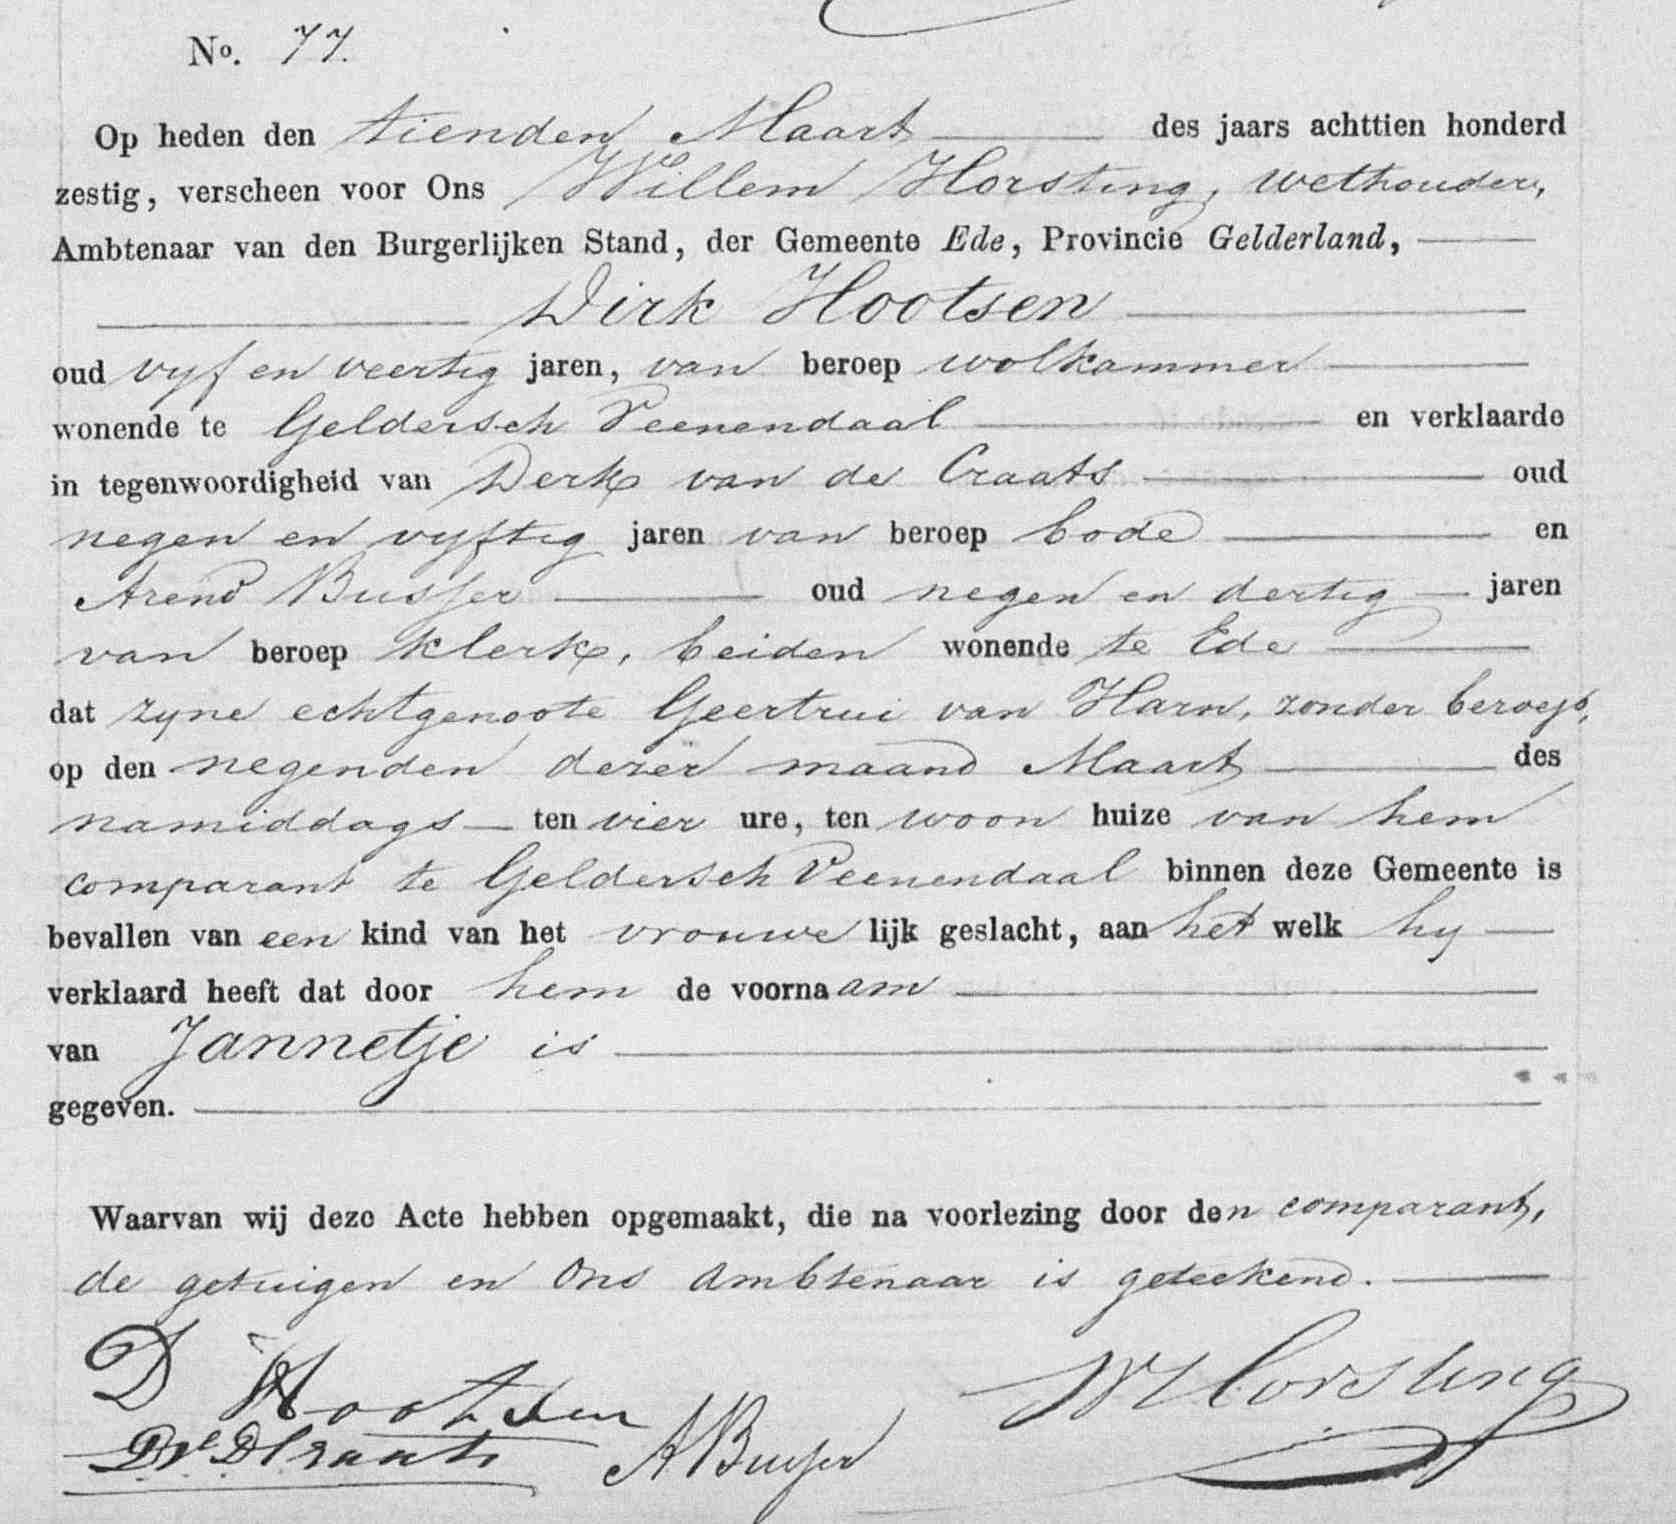 No. 77.
Op heden den tienden Maart des jaars achttien honderd
zestig, verscheen voor Ons Willem Horsting, wethouder,
Ambtenaar van den Burgerlijken Stand, der Gemeente Ede, Provincie Gelderland,
Dirk Hootsen
oud vyf en veertig jaren, van beroep wolkammer
wonende te Geldersch Veenendaal en verklaarde
in tegenwoordigheid van Derk van de Craats oud
negen en vyftig jaren van beroep bode en
Arend Busser oud negen en dertig jaren
van beroep klerk, beiden wonende te Ede
dat zyne echtgenoote Geertrui van Harn, zonder beroep,
op den negenden dezer maand Maart des
namiddags ten vier ure, ten woon huize van hem
comparant te Geldersch Veenendaal binnen deze Gemeente is
bevallen van een kind van het vrouwe lijk geslacht, aan het welk hy
verklaard heeft dat door hem de voornaam
van Jannetje is
gegeven.
Waarvan wij deze Acte hebben opgemaakt, die na voorlezing door den comparant,
de getuigen en Ons Ambtenaar is geteekend.
D Hootsen
WHorsting
DvD Craats
ABusser